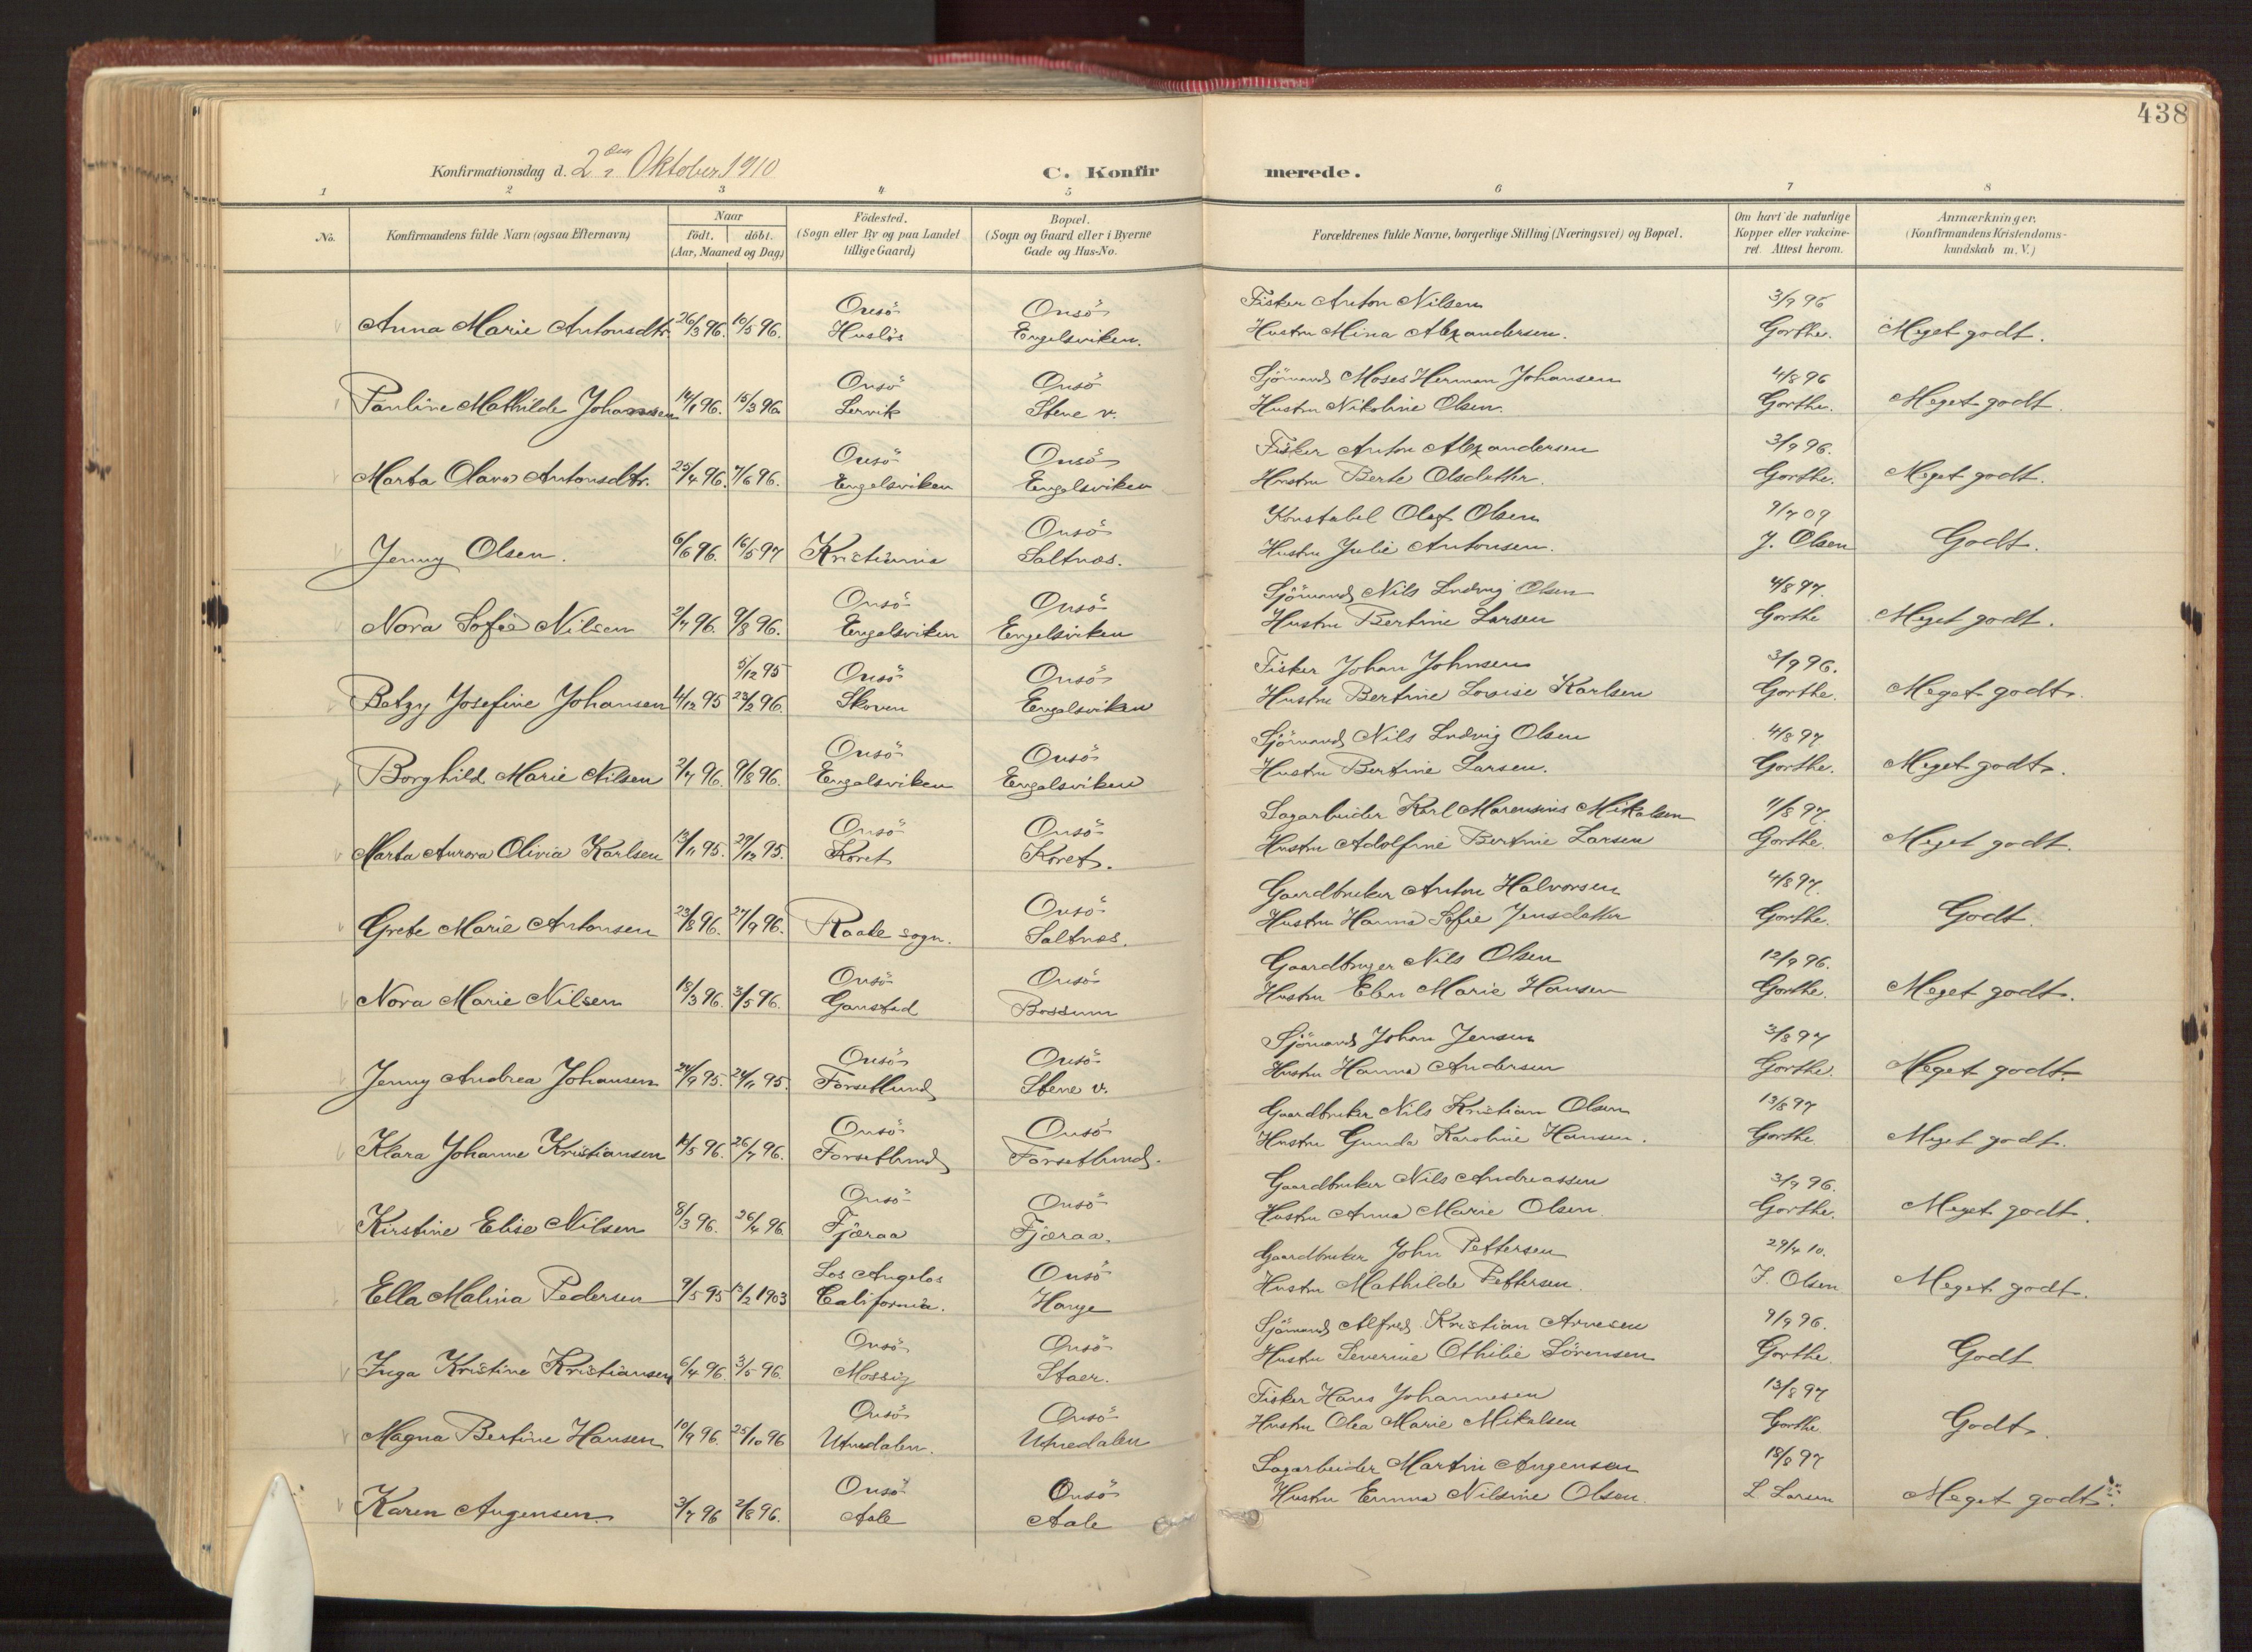 438
Konfirmationsdag d. 2den Oktober 1910
C. Konfirmerede.
1 2 3 4 5 6 7 8
No.
Konfirmandens fulde Navn (ogsaa Efternavn)
Naar
födt. döbt.
(Aar, Maaned og Dag)
Födested.
(Sogn eller By og paa Landet
tillige Gaard)
Bopæl.
(Sogn og Gaard eller i Byerne
Gade og Hus-No.
Forældrenes fulde Navne, borgerlige Stilling (Næringsvei) og Bopæl.
Om havt de naturlige
Kopper eller vakcine-
ret. Attest herom.
Anmærkninger.
(Konfirmandens Kristendoms-
kundskab m. V.)
Onsö Onsö Fisker Anton Nilsen 3/9 96
Anna Marie Antonsdtr. 26/3 96. 10/5 96. Huslös Engelsviken. Hustru Mina Alexandersen. Gorthe. Meget godt.
Onsö Onsö Sjömand Moses Herman Johansen 4/8 96
Pauline Mathilde Johansen 14/1 96. 15/3 96. Lervik Stene v. Hustru Nikoline Olsen. Gorthe. Meget godt.
Onsö Onsö Fisker Anton Alexandersen 3/9 96.
Marta Olava Antonsdtr. 25/4 96. 7/6 96. Engelsviken Engelsviken Hustru Berte Olsdatter. Gorthe. Meget godt.
Onsö Konstabel Olaf Olsen 9/7 09
Jenny Olsen. 6/6 96. 16/5 97 Kristiania Saltnæs. Hustru Julie Antonsen. J. Olsen Godt.
Onsö Onsö Sjömand Nils Ludvig Olsen 4/8 97.
Nora Sofie Nilsen 2/7 96. 9/8 96. Engelsviken Engelsviken Hustru Bertine Larsen Gorthe Meget godt.
5/12 95 Onsö Onsö Fisker Johan Johnsen 3/9 96.
Betzy Josefine Johansen 4/12 95 23/2 96. Skoven Engelsviken Hustru Bertine Lovise Karlsen Gorthe. Meget godt.
Onsö Onsö Sjömand Nils Ludvig Olsen 4/8 97
Borghild Marie Nilsen 2/7 96. 9/8 96. Engelsviken Engelsviken Hustru Bertine Larsen. Gorthe. Meget godt.
Onsö Onsö Sagarbeider Karl Marensius Mikalsen 11/8 97.
Marta Aurora Olivia Karlsen 13/11 95. 29/12 95. Koret Koret. Hustru Adolfine Bertine Larsen Gorthe. Meget godt.
Onsö Gaardbruker Anton Halvorsen 4/8 97.
Grete Marie Antonsen 23/8 96. 27/9 96. Raade sogn. Saltnæs. Hustru Hanna Sofie Jensdatter Gorthe. Godt.
Onsö Onsö Gaardbruger Nils Olsen 12/9 96.
Nora Marie Nilsen 18/3 96. 3/5 96. Ganstad Bossum Hustru Elen Marie Hansen Gorthe. Meget godt.
Onsö Onsö Sjömand Johan Jensen 3/8 97
Jenny Andrea Johansen 24/9 95. 24/11 95. Torsetlund Stene v. Hustru Hanna Andersen Gorthe. Meget godt.
Onsö Onsö Gaardbruker Nils Kristian Olsen 13/8 97
Klara Johanne Kristiansen 14/5 96. 26/7 96. Torsetlund Torsetlund. Hustru Gunda Karoline Hansen. Gorthe Meget godt.
Onsö Onsö Gaardbruker Nils Andreassen 3/9 96.
Kirstine Elise Nilsen 8/3 96. 26/4 96. Fjæraa Fjæraa. Hustru Anna Marie Olsen. Gorthe. Meget godt.
Los Angelos Onsö Gaardbruker John Pettersen 29/4 10.
Ella Malina Pedersen 9/5 95 13/2 1903 California. Hauge Hustru Mathilde Pettersen. J. Olsen Meget godt.
Onsö Onsö Sjömand Alfred Kristian Arnesen 9/9 96.
Inga Kristine Kristiansen 6/4 96. 3/5 96. Mossig Staer. Hustru Severine Othilie Sörensen Gorthe. Godt
Onsö Onsö Fisker Hans Johannesen 13/8 97
Magna Bertine Hansen 10/9 96. 25/10 96 Utnedalen. Utnedalen Hustru Olea Marie Mikalsen Gorthe Godt.
Onsö Onsö Sagarbeider Martin Augensen 18/8 97
Karen Augensen. 3/7 96 2/8 96. Aale Aale Hustru Emma Nilsine Olsen. L. Larsen Meget godt.